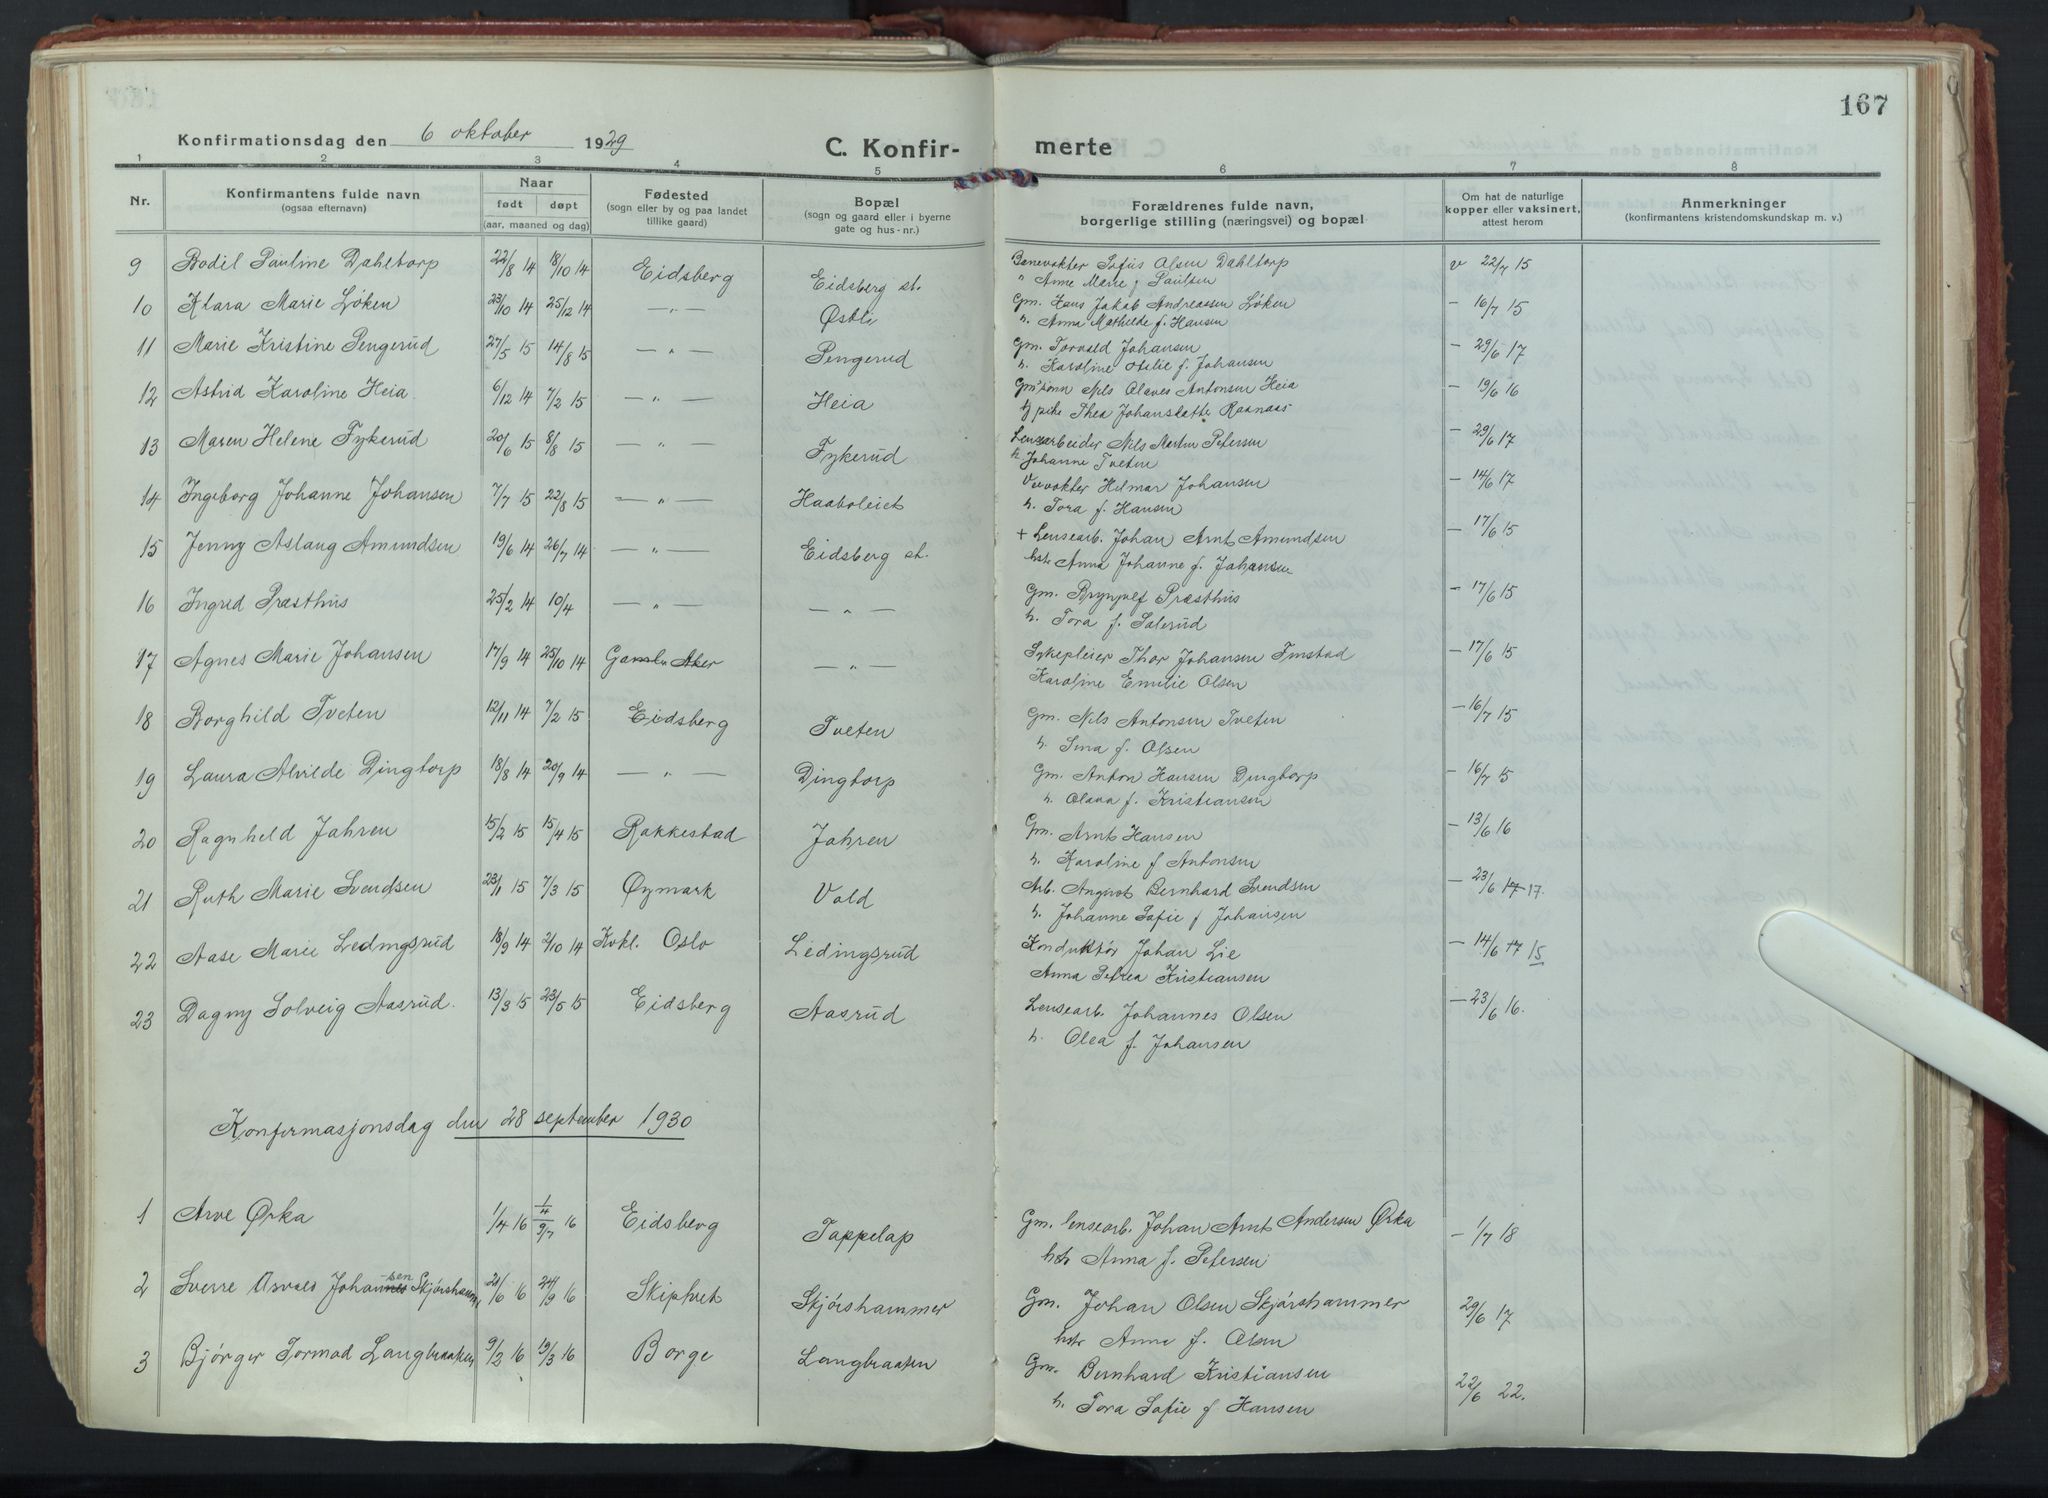 167
Konfirmationsdag den 6 oktober 1929
C. Konfir- merte
1 2 3 4 5 6 7 8
Nr. Konfirmantens fulde navn (ogsaa efternavn) Naar født døpt (aar, maaned og dag) Fødested (sogn eller by og paa landet tillike gaard) Bopæl (sogn og gaard eller i byerne gate og hus-nr.) Forældrenes fulde navn, borgerlige stilling (næringsvei) og bopæl Om hat de naturlige kopper eller vaksinert, attest herom Anmerkninger (konfirmantens kristendomskundskap m. v.)
9 Bodil Pauline Dahltorp 22/8 14 18/10 14 Eidsberg Eidsberg st. Banevokter Sofus Olsen Dahltorp v 22/7 15
" Anne Marie f. Paulsen
10 Klara Marie Løken 23/10 14 25/12 14 — " — Østli Gm. Hans Jakob Andreassen Løken — 16/7 15
h. Anna Mathilde f. Hansen
11 Marie Kristine Pengerud 27/5 15 14/8 15 — " — Pengerud Gm. Torvald Johansen — 29/6 17
h. Karoline Otilie f. Johansen
12 Astrid Karoline Heia 6/12 14 7/2 15 — " — Heia Gm.sønn Nils Olaves Antonsen Heia — 19/6 16
tj pike Thea Johansdatter Raanaas
13 Maren Helene Tykerud 20/6 15 8/8 15 — " — Tykerud Lensearbeider Nils Martin Petersen — 29/6 17
h Johanne Tveten
14 Ingeborg Johanne Johansen 7/7 15 22/8 15 — " — Haabøleiet Veivokter Hilmar Johansen — 14/6 17
h. Tora f. Hansen
15 Jenny Aslaug Amundsen 19/6 14 26/7 14 — " — Eidsberg st. + Lensearb. Johan Arnt Amundsen — 17/6 15
hstr Anna Johanne f. Johansen
16 Ingrid Præsthus 25/2 14 10/4 — " — — " — Gm. Brynjulf Præsthus — 17/6 15
h. Tora f. Salerud
17 Agnes Marie Johansen 17/9 14 25/10 14 Gamle Aker — " — Sykepleier Thor Johansen Finstad — 17/6 15
Karoline Emilie Olsen
18 Borghild Tveten 12/11 14 7/2 15 Eidsberg Tveten Gm. Nils Antonsen Tveten — 16/7 15
h. Sina f. Olsen
19 Laura Alvilde Dingtorp 18/8 14 20/9 14 — " — Dingtorp Gm. Anton Hansen Dingtorp — 16/7 15
h. Olava f. Kristiansen
20 Ragnhild Jahren 15/2 15 15/4 15 Rakkestad Jahren Gm. Arnt Hansen — 13/6 16
h. Karoline f Antonsen
21 Ruth Marie Svendsen 23/1 15 7/3 15 Øymark Vold Arb. Bernhard Svendsen — 23/6 17 17.
h. Johanne Sofie f Johansen
22 Aase Marie Ledingsrud 18/9 14 2/10 14 Kvkl. Oslo Ledingsrud Konduktør Johan Lie — 14/6 17 15
Anna Petrea Kristiansen
23 Dagny Solveig Aasrud. 13/3 15 23/5 15 Eidsberg Aasrud Lensearb. Johannes Olsen — 23/6 16.
h. Olea f. Johansen
Konfirmasjonsdag den 28 september 1930
1 Arve Ørka 1/4 16 1/4 9/7 16 Eidsberg Tappelap Gm. lensearb. Johan Arnt Andersen Ørka — 1/7 18
hstr Anna f. Petersen
2 Sverre Osvald Johansen Skjørshammer 21/6 16 24/9 16 Skiptvet Skjørshammer Gm. Johan Olsen Skjørshammer 29/6 17
hstr Anna f. Olsen
3 Bjørger Tormod Langbraaten 9/2 16 19/3 16 Borge Langbraaten Gm. Bernhard Kristiansen 22/6 22.
h. Tora Sofie f Hansen